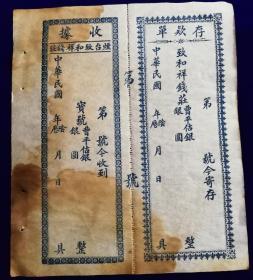 存欵單
第　　號今寄存
致和祥錢莊曹平估銀
銀圓
中華民國　年陰曆　月　日
整
具
第　號
收據
煙台致和祥錢莊
第　　號今收到
寶號曹平估銀
銀圓
中華民國　年陰曆　月　日
整
具